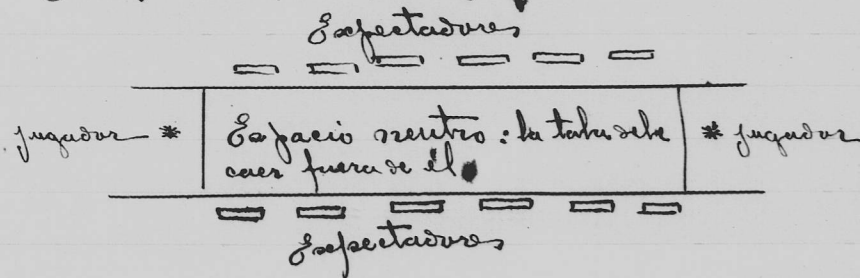 Espectadores
jugador * Espacio neutro: la taba debe * jugador
caer fuera de él.
Espectadores